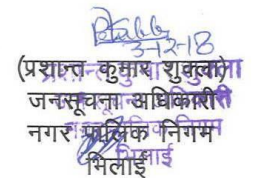 3-12-18
(प्रशान्त कुमार शुक्ला)
जनसूचना अधिकारी
नगर पालिक निगम
भिलाई